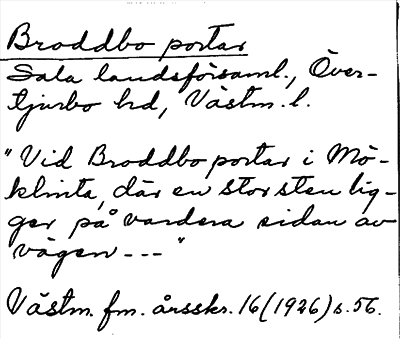 Broddbo portar
Sala landsförsaml., Över-
tjurbo hd, Västm. l.
"Vid Broddbo portar i Mö-
klinta, där en stor sten lig-
ger på vardera sidan av
vägen ---"
Västm. fm. årsskr. 16 (1926) s. 56.